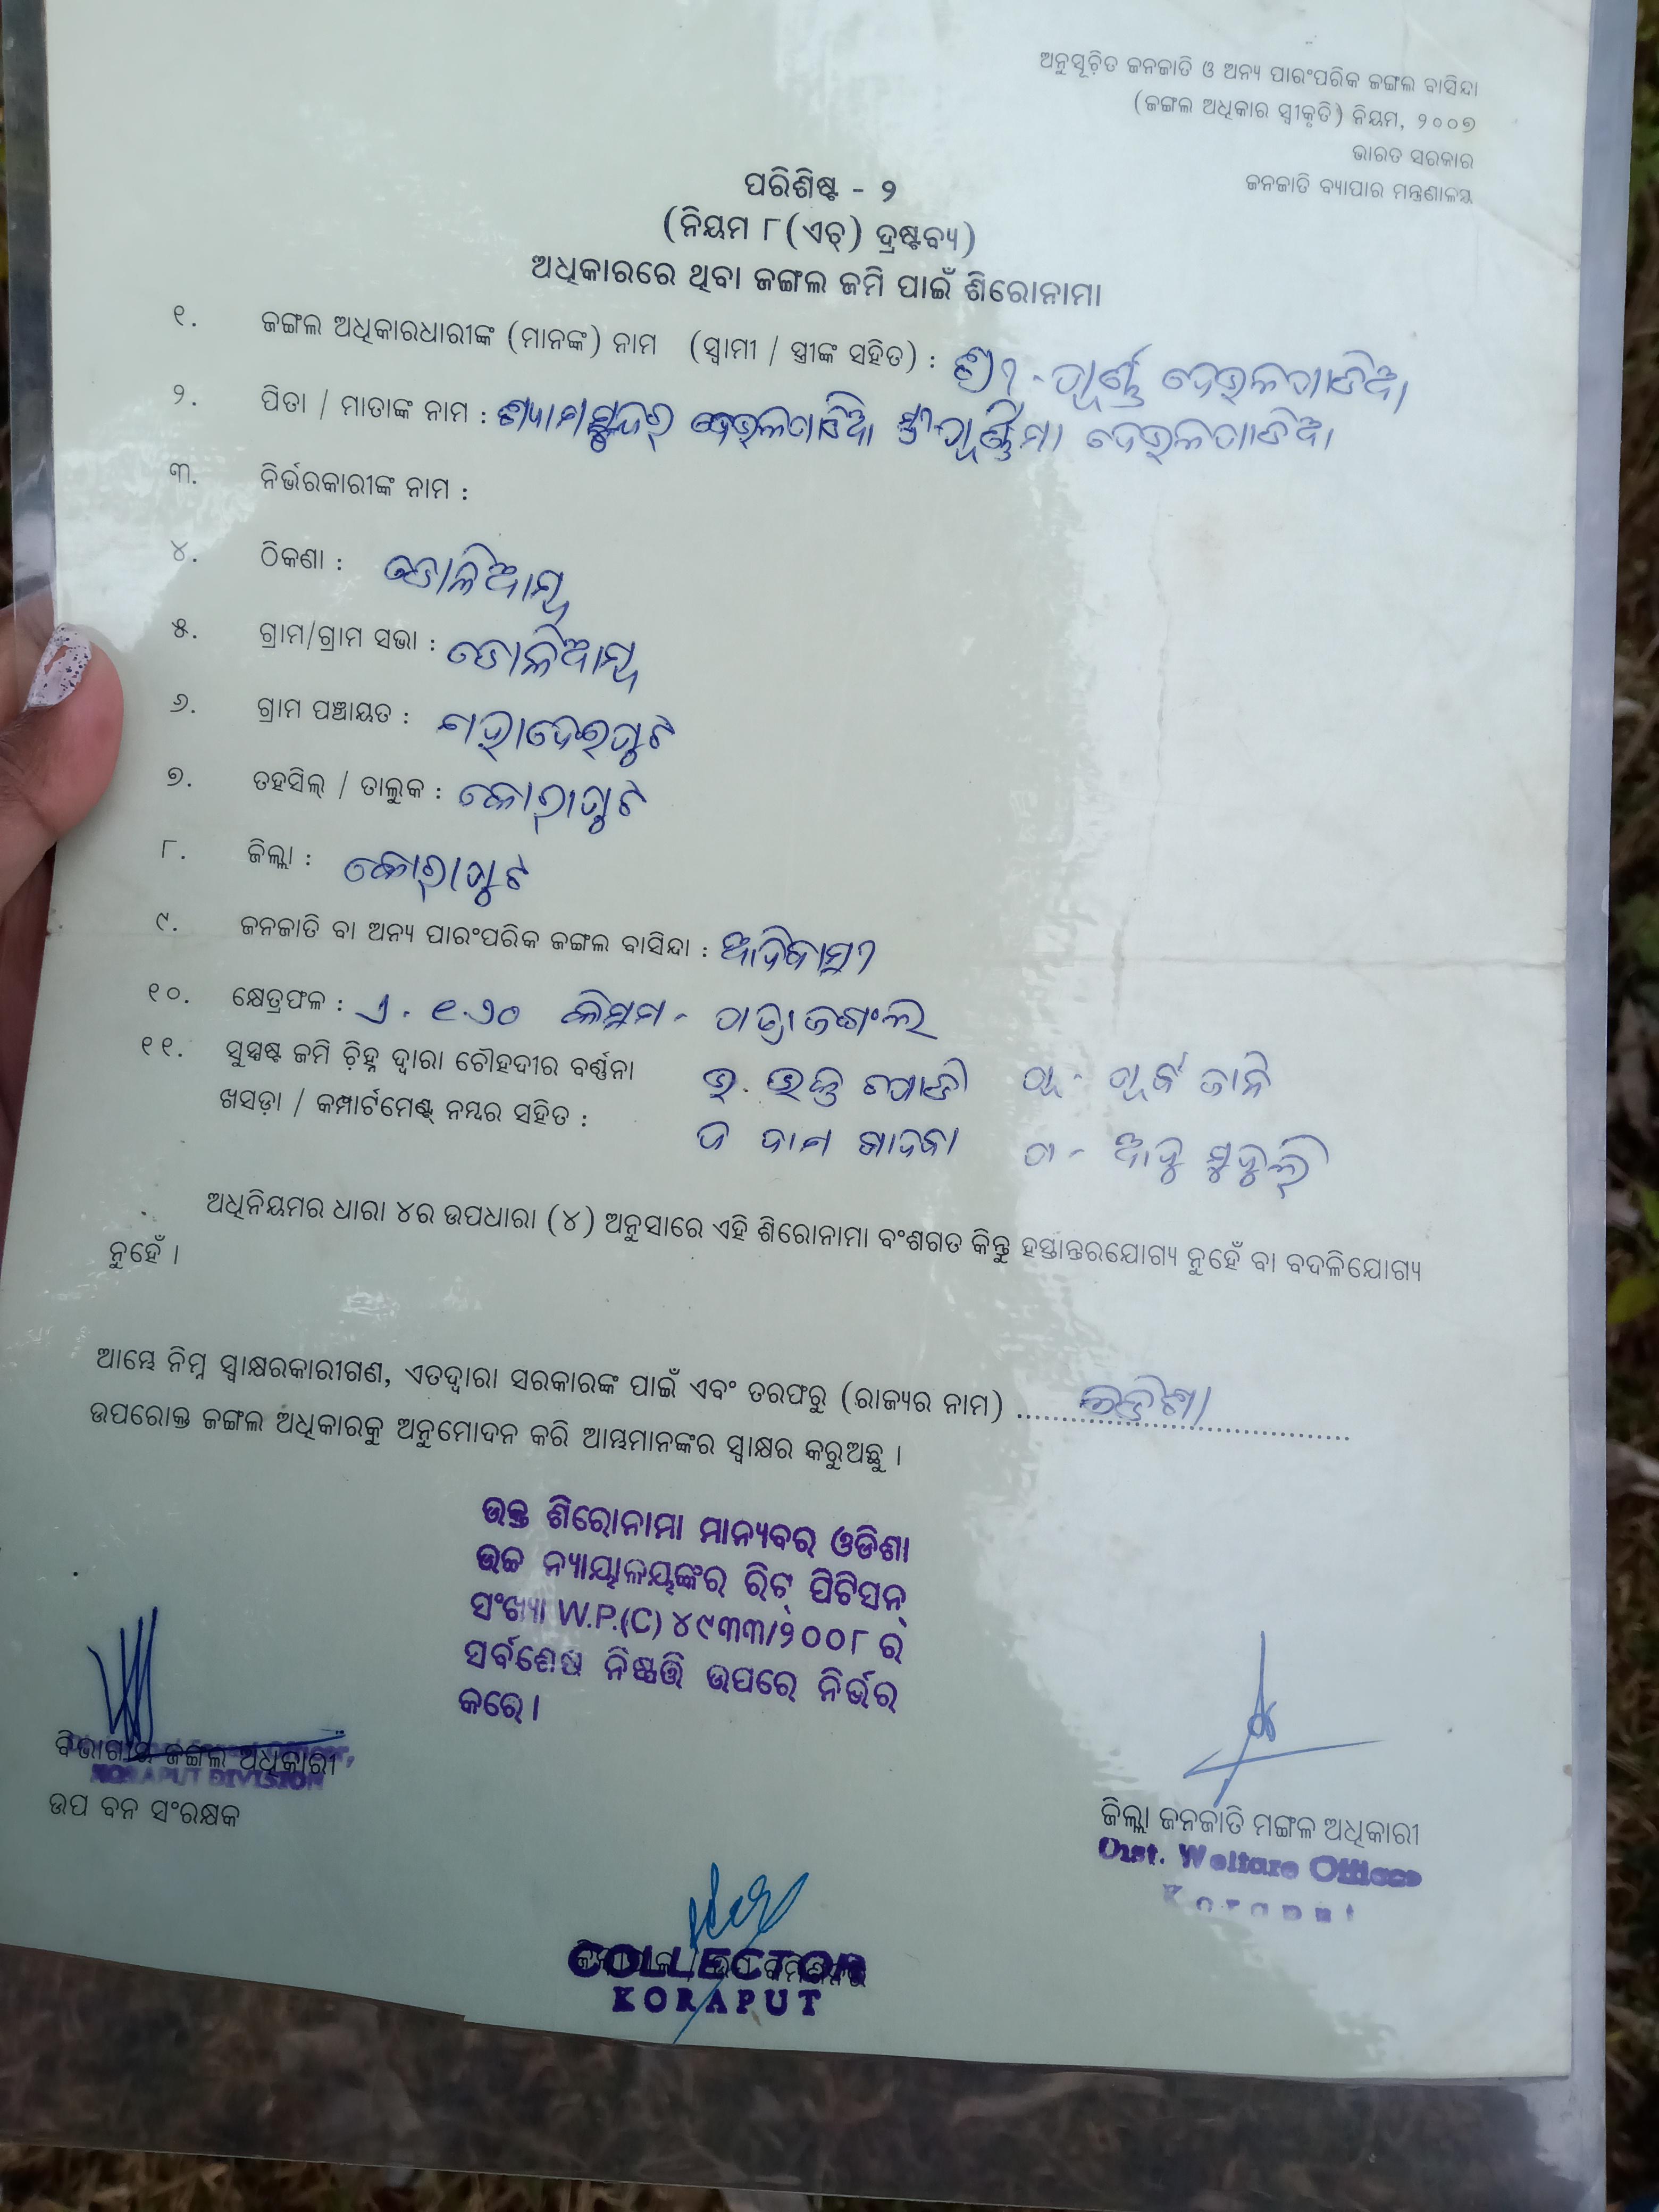 ଅନୁସୂଚିତ ଜନଜାତି ଓ ଅନ୍ୟ ପାରଂପରିକ ଜଙ୍ଗଲ ବାସିନ୍ଦା
(ଜଙ୍ଗଲ ଅଧିକାର ସ୍ୱୀକୃତି) ନିୟମ, ୨୦୦୭
ଭାରତ ସରକାର
ଜନଜାତି ବ୍ୟାପାର ମନ୍ତ୍ରଣାଳୟ
ପରିଶିଷ୍ଟ - ୨
(ନିୟମ ୮(ଏଚ୍) ଦ୍ରଷ୍ଟବ୍ୟ)
ଅଧିକାରରେ ଥିବା ଜଙ୍ଗଲ ଜମି ପାଇଁ ଶିରୋନାମା
୧. ଜଙ୍ଗଲ ଅଧିକାରଧାରୀଙ୍କ (ମାନଙ୍କ) ନାମ (ସ୍ୱାମୀ / ସ୍ତ୍ରୀଙ୍କ ସହିତ) : ଶ୍ରୀ - ପୂର୍ଣ୍ଣ ଦେଉଳପାଡିଆ
୨. ପିତା / ମାତାଙ୍କ ନାମ : ଶ୍ୟାମସୁନ୍ଦର ଦେଉଳପାଡିଆ ସ୍ତ୍ରୀ-ପୂର୍ଣ୍ଣିମା ଦେଉଳପାଡିଆ
୩. ନିର୍ଭରକାରୀଙ୍କ ନାମ :
୪. ଠିକଣା : ତୋଳିଆମ୍ବ
୫. ଗ୍ରାମ/ଗ୍ରାମ ସଭା : ତୋଳିଆମ୍ବ
୬. ଗ୍ରାମ ପଞ୍ଚାୟତ : ମହାଦେଇପୁଟ
୭. ତହସିଲ୍ / ତାଲୁକ : କୋରାପୁଟ
୮. ଜିଲ୍ଲା : କୋରାପୁଟ
୯. ଜନଜାତି ବା ଅନ୍ୟ ପାରଂପରିକ ଜଙ୍ଗଲ ବାସିନ୍ଦା : ଆଦିବାସୀ
୧୦. କ୍ଷେତ୍ରଫଳ : ଏ. ୧.୨୦ କିସମ -
୧୧. ସୁସ୍ପଷ୍ଟ ଜମି ଚିହ୍ନ ଦ୍ୱାରା ଚୌହଦୀର ବର୍ଣ୍ଣନା ଉ. ପୂ - ପୂର୍ବ ଜାନି
ଖସଡ଼ା / କମ୍ପାର୍ଟମେଣ୍ଟ ନମ୍ବର ସହିତ : ଦ ଦାମ ପ -
ଅଧିନିୟମର ଧାରା ୪ର ଉପଧାରା (୪) ଅନୁସାରେ ଏହି ଶିରୋନାମା ବଂଶଗତ କିନ୍ତୁ ହସ୍ତାନ୍ତରଯୋଗ୍ୟ ନୁହେଁ ବା ବଦଳିଯୋଗ୍ୟ
ନୁହେଁ ।
ଆମ୍ଭେ ନିମ୍ନ ସ୍ୱାକ୍ଷରକାରୀଗଣ, ଏତଦ୍ୱାରା ସରକାରଙ୍କ ପାଇଁ ଏବଂ ତରଫରୁ (ରାଜ୍ୟର ନାମ) ..... ଓଡ଼ିଶା .....
ଉପରୋକ୍ତ ଜଙ୍ଗଲ ଅଧିକାରକୁ ଅନୁମୋଦନ କରି ଆମ୍ଭମାନଙ୍କର ସ୍ୱାକ୍ଷର କରୁଅଛୁ ।
ଉକ୍ତ ଶିରୋନାମା ମାନ୍ୟବର ଓଡିଶା
ଉଚ୍ଚ ନ୍ୟାୟାଳୟଙ୍କର ରିଟ୍ ପିଟିସନ୍
ସଂଖ୍ୟା W.P.(C) ୪୯୩୩/୨୦୦୮ ର
ସର୍ବଶେଷ ନିଷ୍ପତ୍ତି ଉପରେ ନିର୍ଭର
କରେ ।
ବିଭାଗୀୟ ଜଙ୍ଗଲ ଅଧିକାରୀ
KORAPUT DIVISION
ଉପ ବନ ସଂରକ୍ଷକ
ଜିଲ୍ଲା ଜନଜାତି ମଙ୍ଗଳ ଅଧିକାରୀ
Dist. Welfare Officer
Koraput
COLLECTOR
KORAPUT